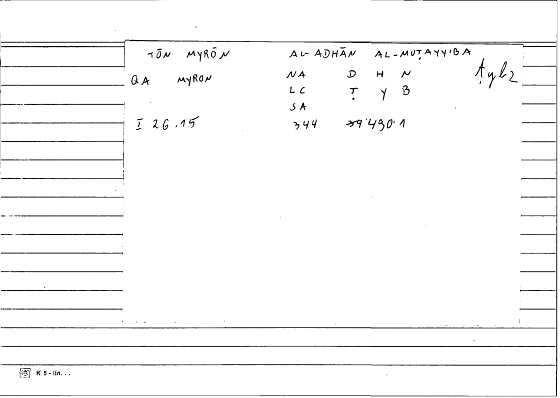 TŌN MYRŌN AL-ADHĀN AL-MUṬAYYIBA
QA MYRON NA D H N
LC Ṭ Y B
SA
I 26.15 344
K 5 - lin. . .